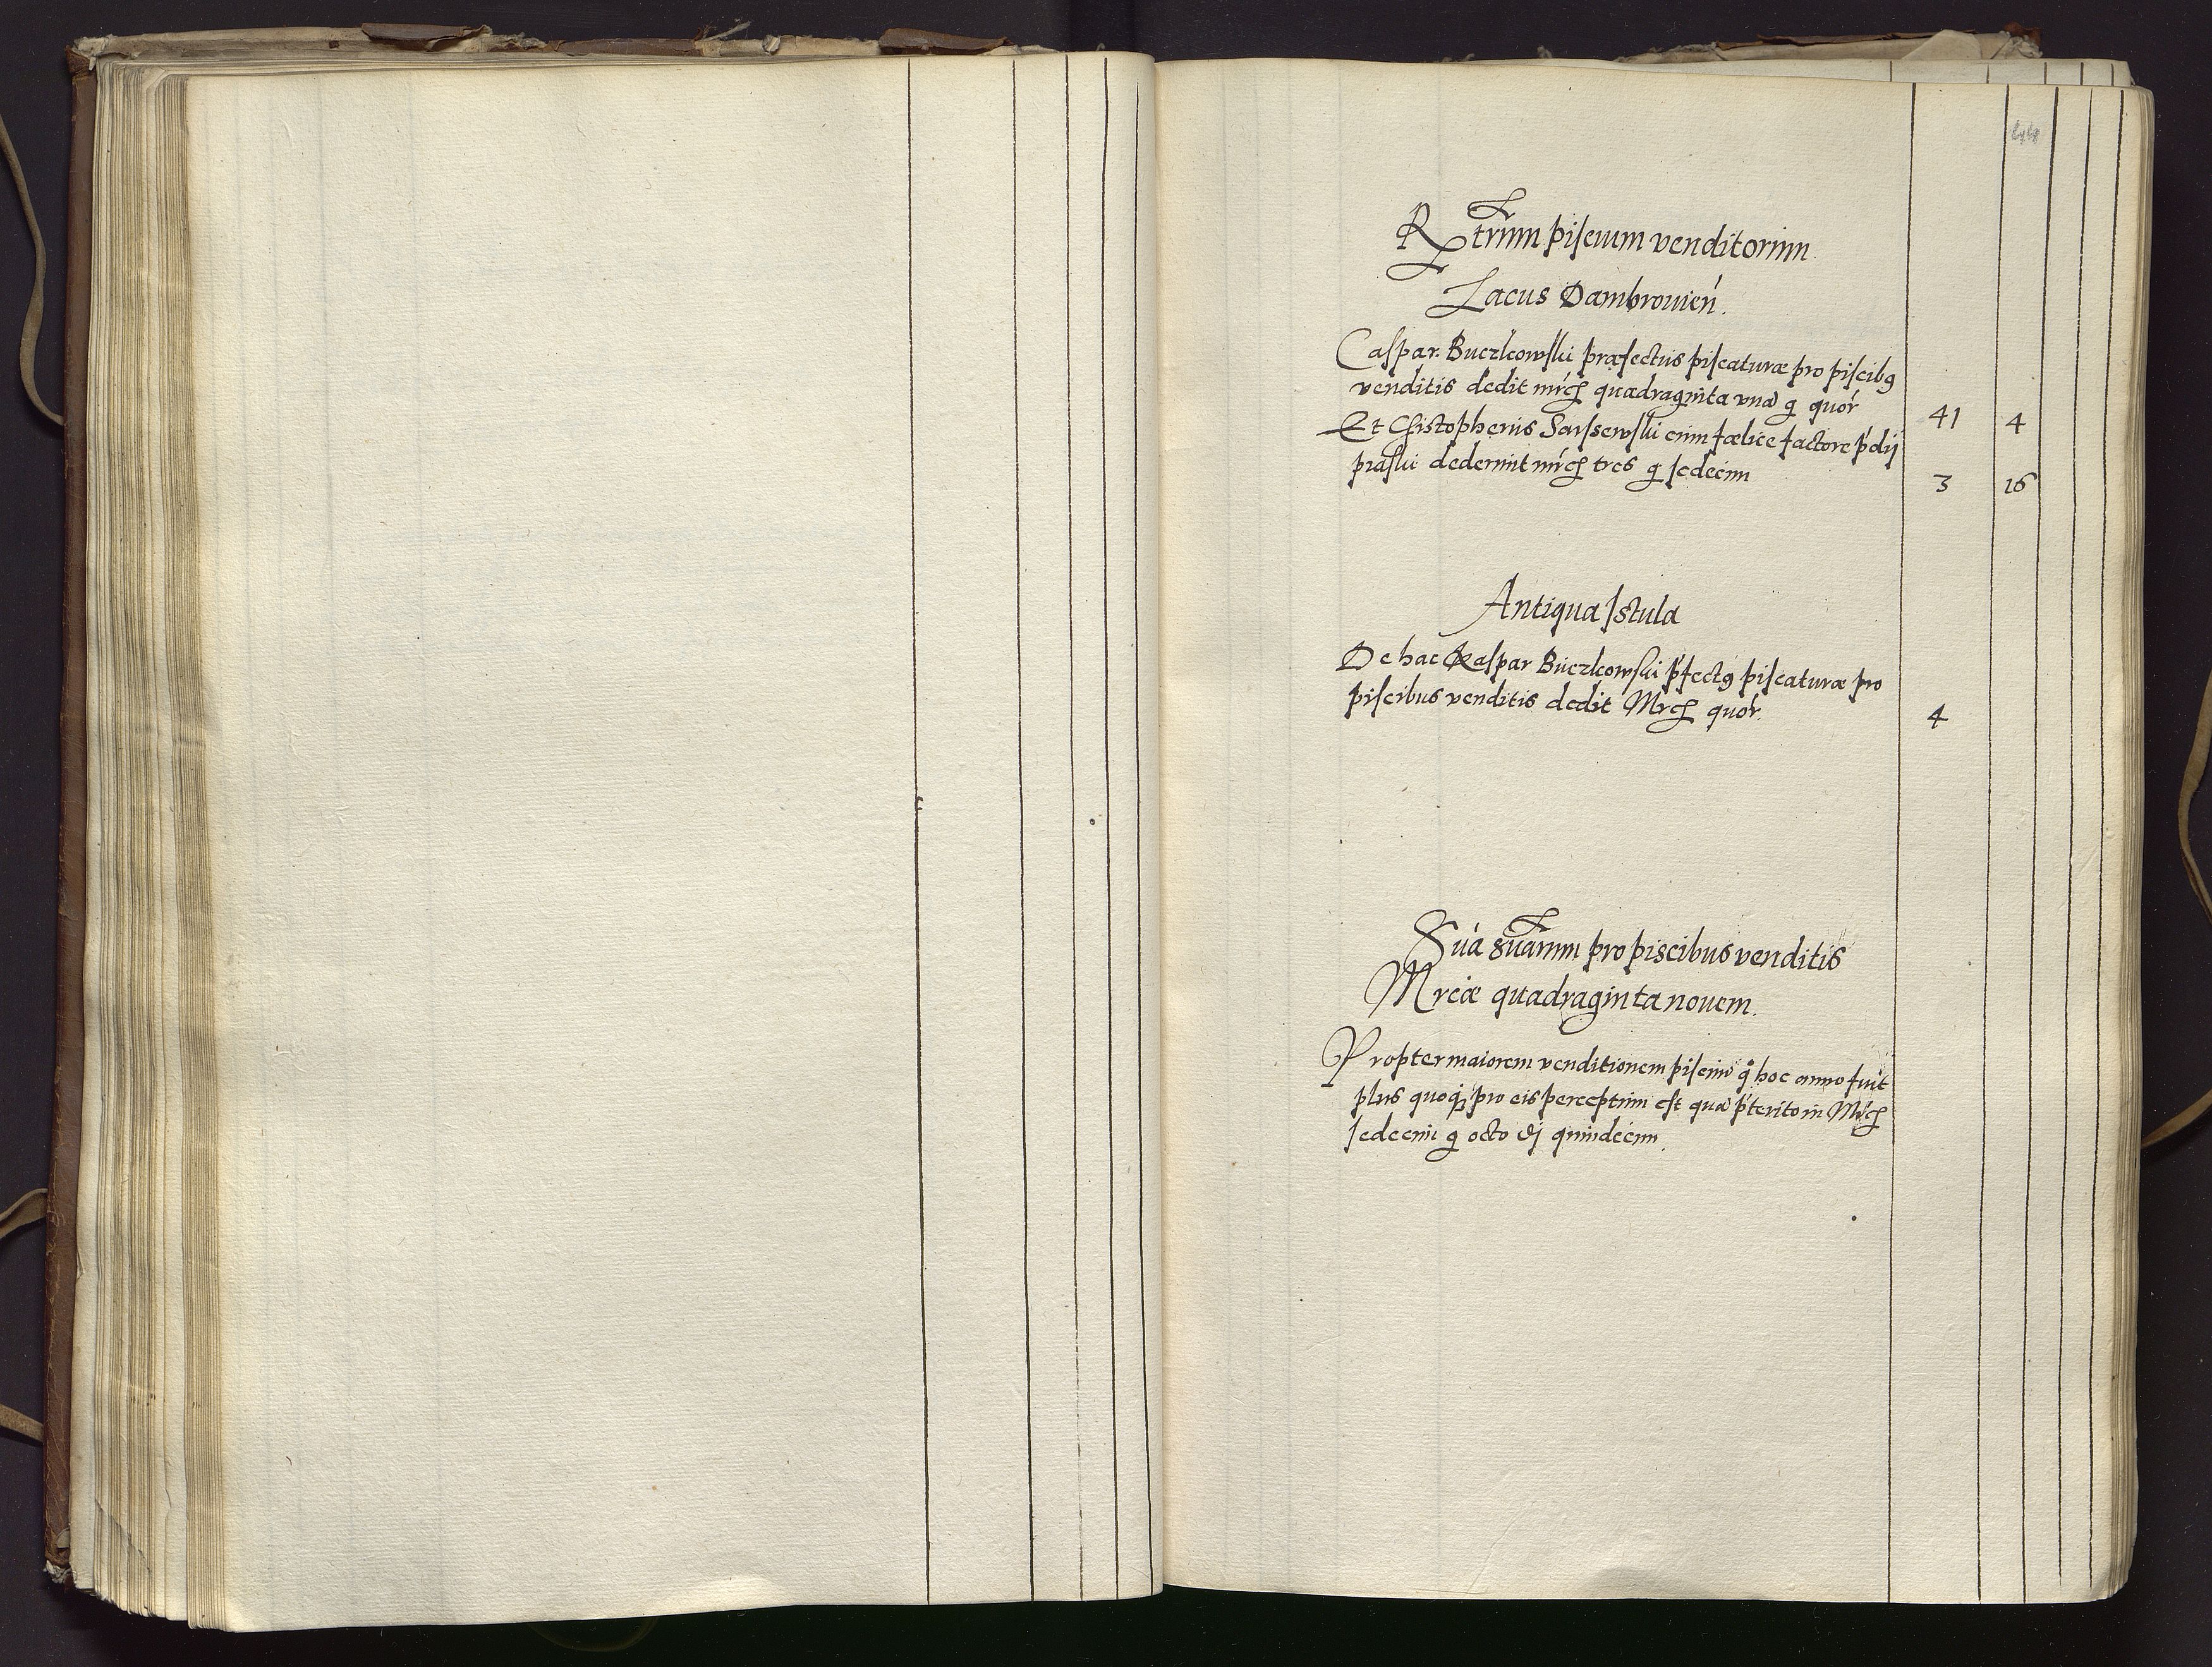 44
Rtrũm piscium venditorum
Lacus Dambrowień.
Caspar Buczkowski præfectus piscaturæ pro piscibꝯ
venditis dedit mrcß quadraginta vnã g quor̃ 41 4
Et Chistopherus Sarssewski cum fælice factore p̃dij
praski dederunt mrcß tres g sedecim 3 16
Antiqua Istula
De hac Kaspar Buczkowski p̃fectꝯ piscaturæ pro
piscibus venditis dedit Mrcß quor̃. 4
Sũa sũarum pro piscibus venditis
Mrcæ quadraginta nouem.
Propter maiorem venditionem pisciũ q̃ hoc anno fuit
plus quoqꝫ pro eis perceptum est quã p̃terito in Mrcß
sedecim g octo d quindecim.